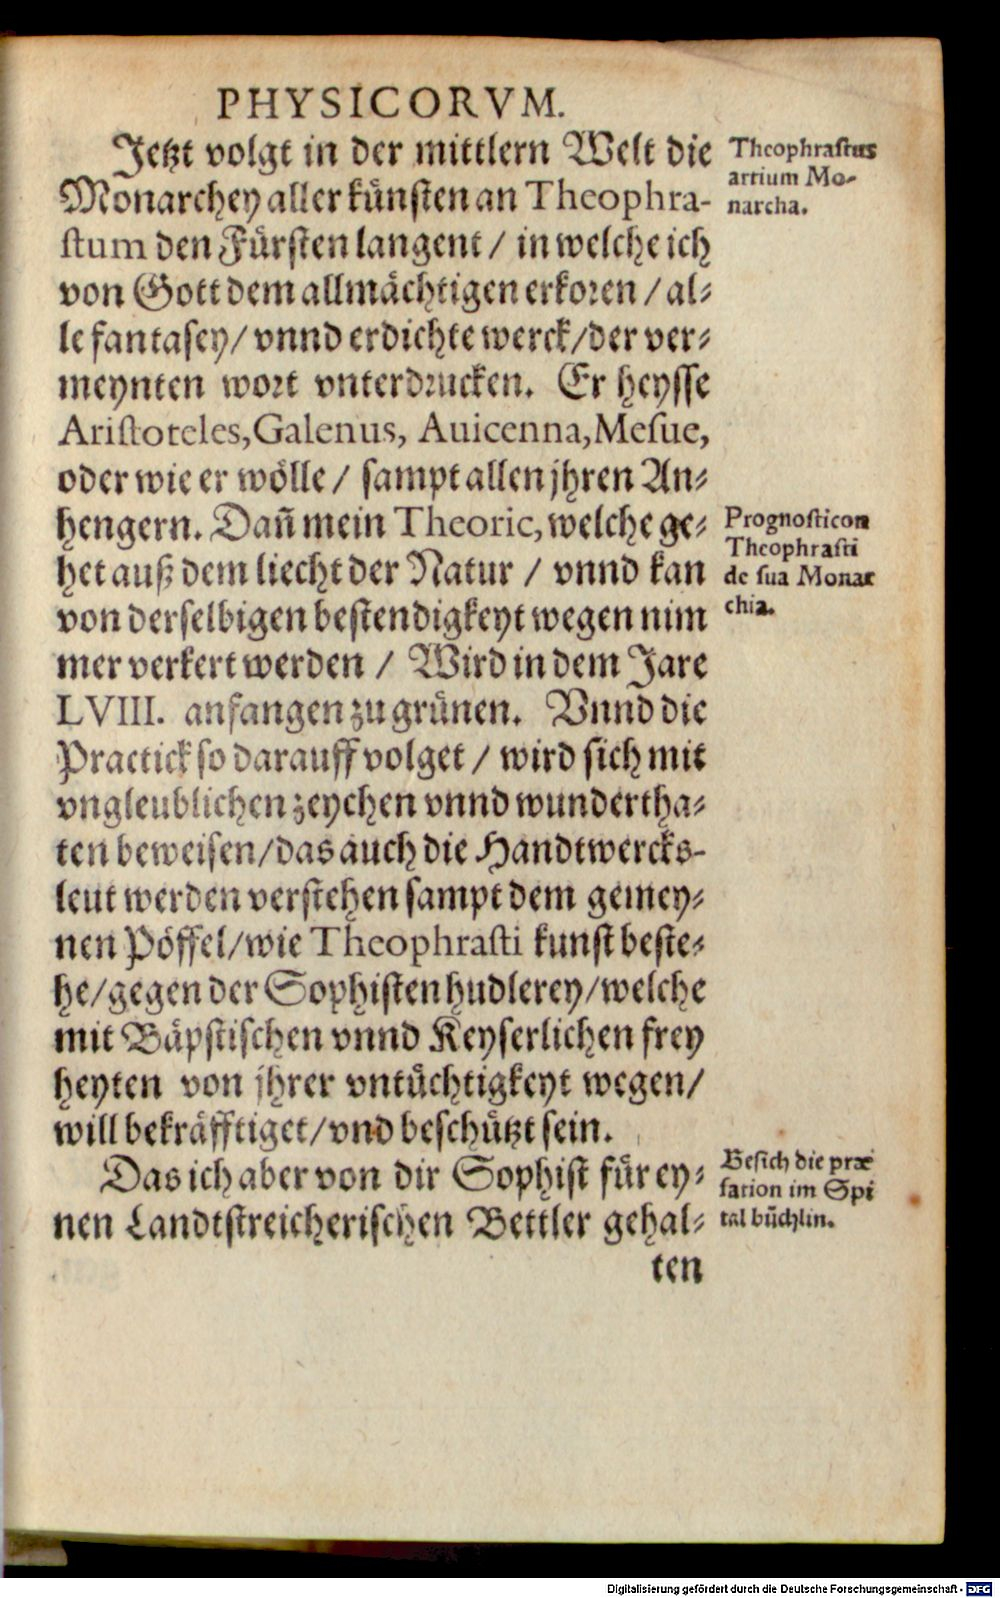 PHYSICORVM.
Jetzt volgt in der mittlern Welt die
Monarchey aller künsten an Theophra-
stum den Fürsten langent / in welche ich
von Gott dem allmächtigen erkoren / al-
le fantasey / vnnd erdichte werck / der ver-
meynten wort vnterdrucken. Er heysse
Aristoteles, Galenus, Auicenna, Mesue,
oder wie er wölle / sampt allen jhren An-
hengern. Dañ mein Theoric, welche ge-
het auß dem liecht der Natur / vnnd kan
von derselbigen bestendigkeyt wegen nim
mer verkert werden / Wird in dem Jare
LVIII. anfangen zu grünen. Vnnd die
Practick so darauff volget / wird sich mit
vngleublichen zeychen vnnd wundertha-
ten beweisen / das auch die Handtwercks-
leut werden verstehen sampt dem gemey-
nen Pöffel / wie Theophrasti kunst beste-
he / gegen der Sophisten hudlerey / welche
mit Bäpstischen vnnd Keyserlichen frey
heyten von jhrer vntüchtigkeyt wegen /
will bekräfftiget / vnd beschützt sein.
Das ich aber von dir Sophist für ey-
nen Landtstreicherischen Bettler gehal-
ten
Theophrastus
artium Mo-
narcha.
Prognosticon
Theophrasti
de sua Monar
chia.
Besich die præ
fation im Spi
tal büchlin.
Digitalisierung gefördert durch die Deutsche Forschungsgemeinschaft - DFG